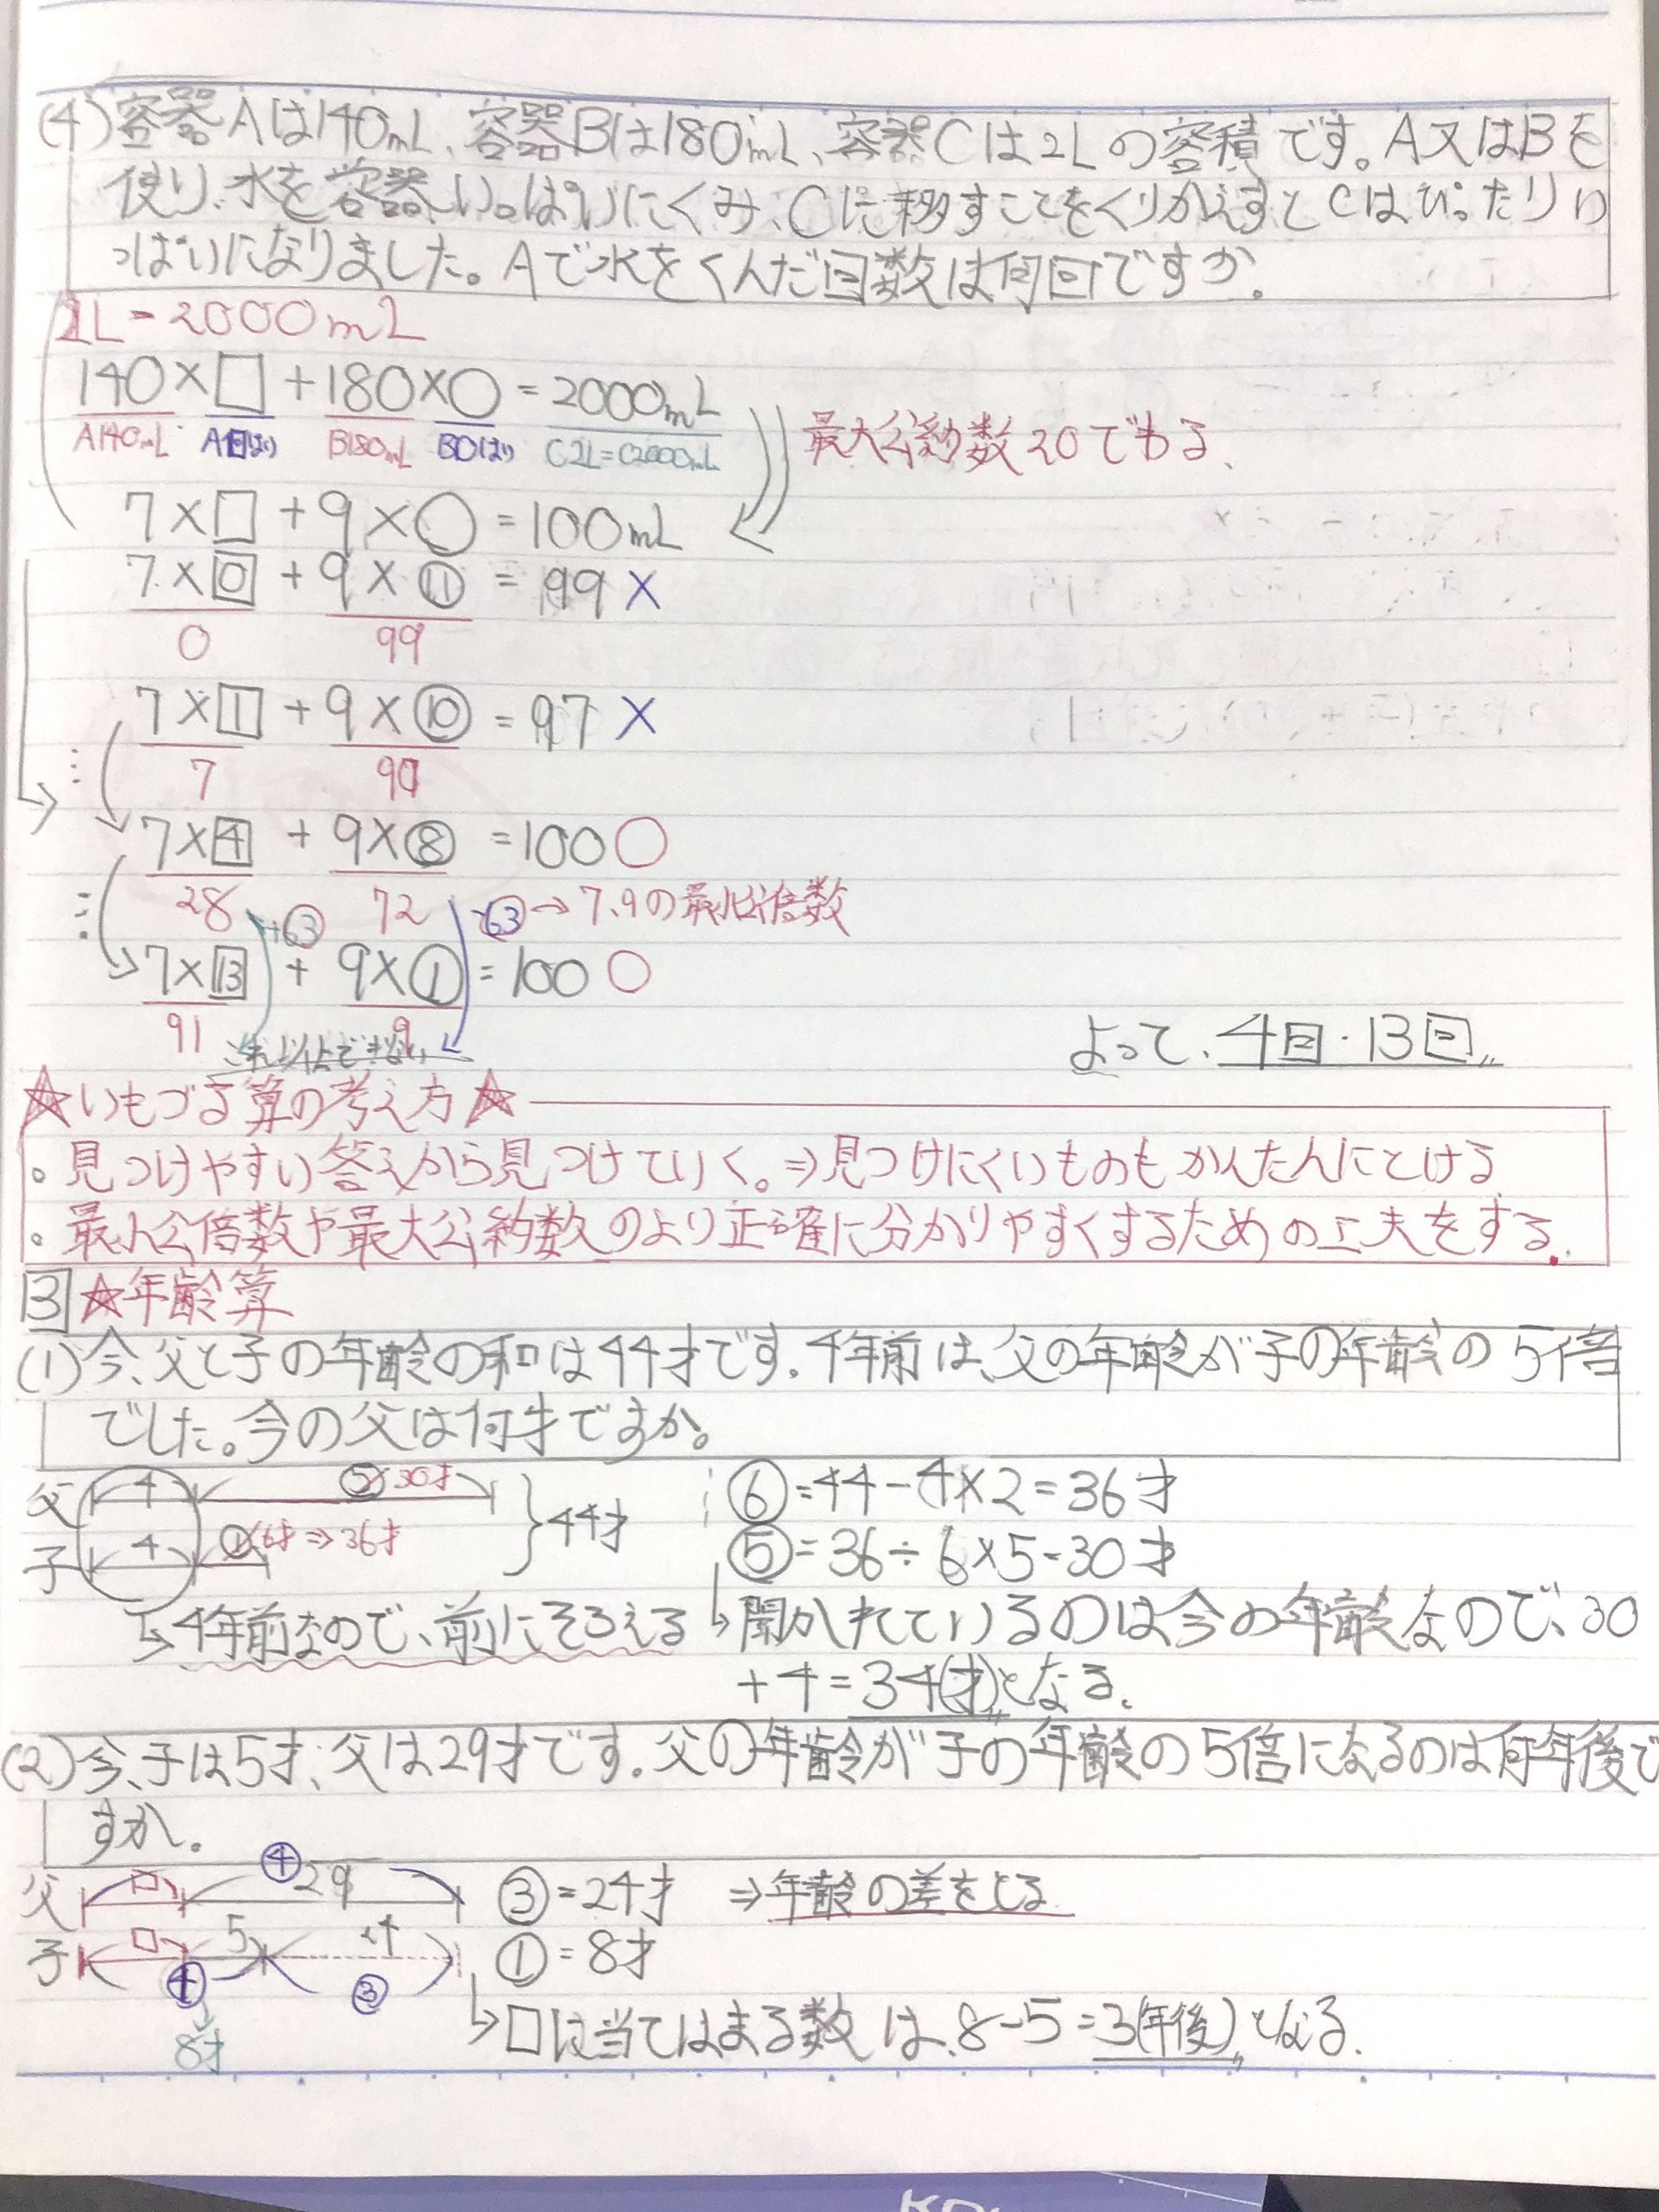 (4)容器Aは140mL、容器Bは180mL、容器Cは2Lの容積です。A又はBを
使い、水を容器いっぱいにくみ、Cに移すことをくりかえすとCはぴったりい
っぱいになりました。Aで水をくんだ回数は何回ですか。
2L=2000mL
140×□+180×○=2000mL
A140mL A回(は) B180mL B○(は) C2L=C2000mL
最大公約数20でわる、
7×□+9×○=100mL
7×0+9×⑪=99×
0 99
7×1+9×⑩=97×
7 90
7×4+9×⑧=100○
28 72
+63 -63→7、9の最小公倍数
7×13+9×①=100○
91 9
これ以上できない
よって、4回・13回〃
☆いもづる算の考え方☆
。見つけやすい答えから見つけていく。⇒見つけにくいものもかんたんにとける
。最小公倍数や最大公約数のより正確に分かりやすくするための工夫をする.
3 ☆年齢算
(1)今、父と子の年齢の和は44才です。4年前は、父の年齢が子の年齢の5倍
でした。今の父は何才ですか。
父 4 ⑤30才
子 4 ①6才⇒36才
44才
⑥=44-4×2=36才
⑤=36÷6×5=30才
↳4年前なので、前にそろえる
↳聞かれているのは今の年齢なので、30
+4=34(才)〃となる。
(2)今、子は5才、父は29才です。父の年齢が子の年齢の5倍になるのは何年後で
すか。
父 □ ④ 29
子 □ 5 24
④ ③
8才
③=24才 ⇒年齢の差をとる
①=8才
↳□は当てはまる数は、8-5=3(年後)〃となる.